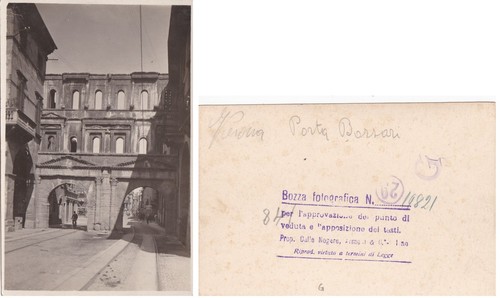 Verona Porta Borsari
Bozza fotografica N. 11821
20
84
per l'approvazione del punto di
veduta e l'apposizione dei testi.
Prop. Dalle Nogare, Armetti & C.
Riprod. vietata a termini di Legge
G